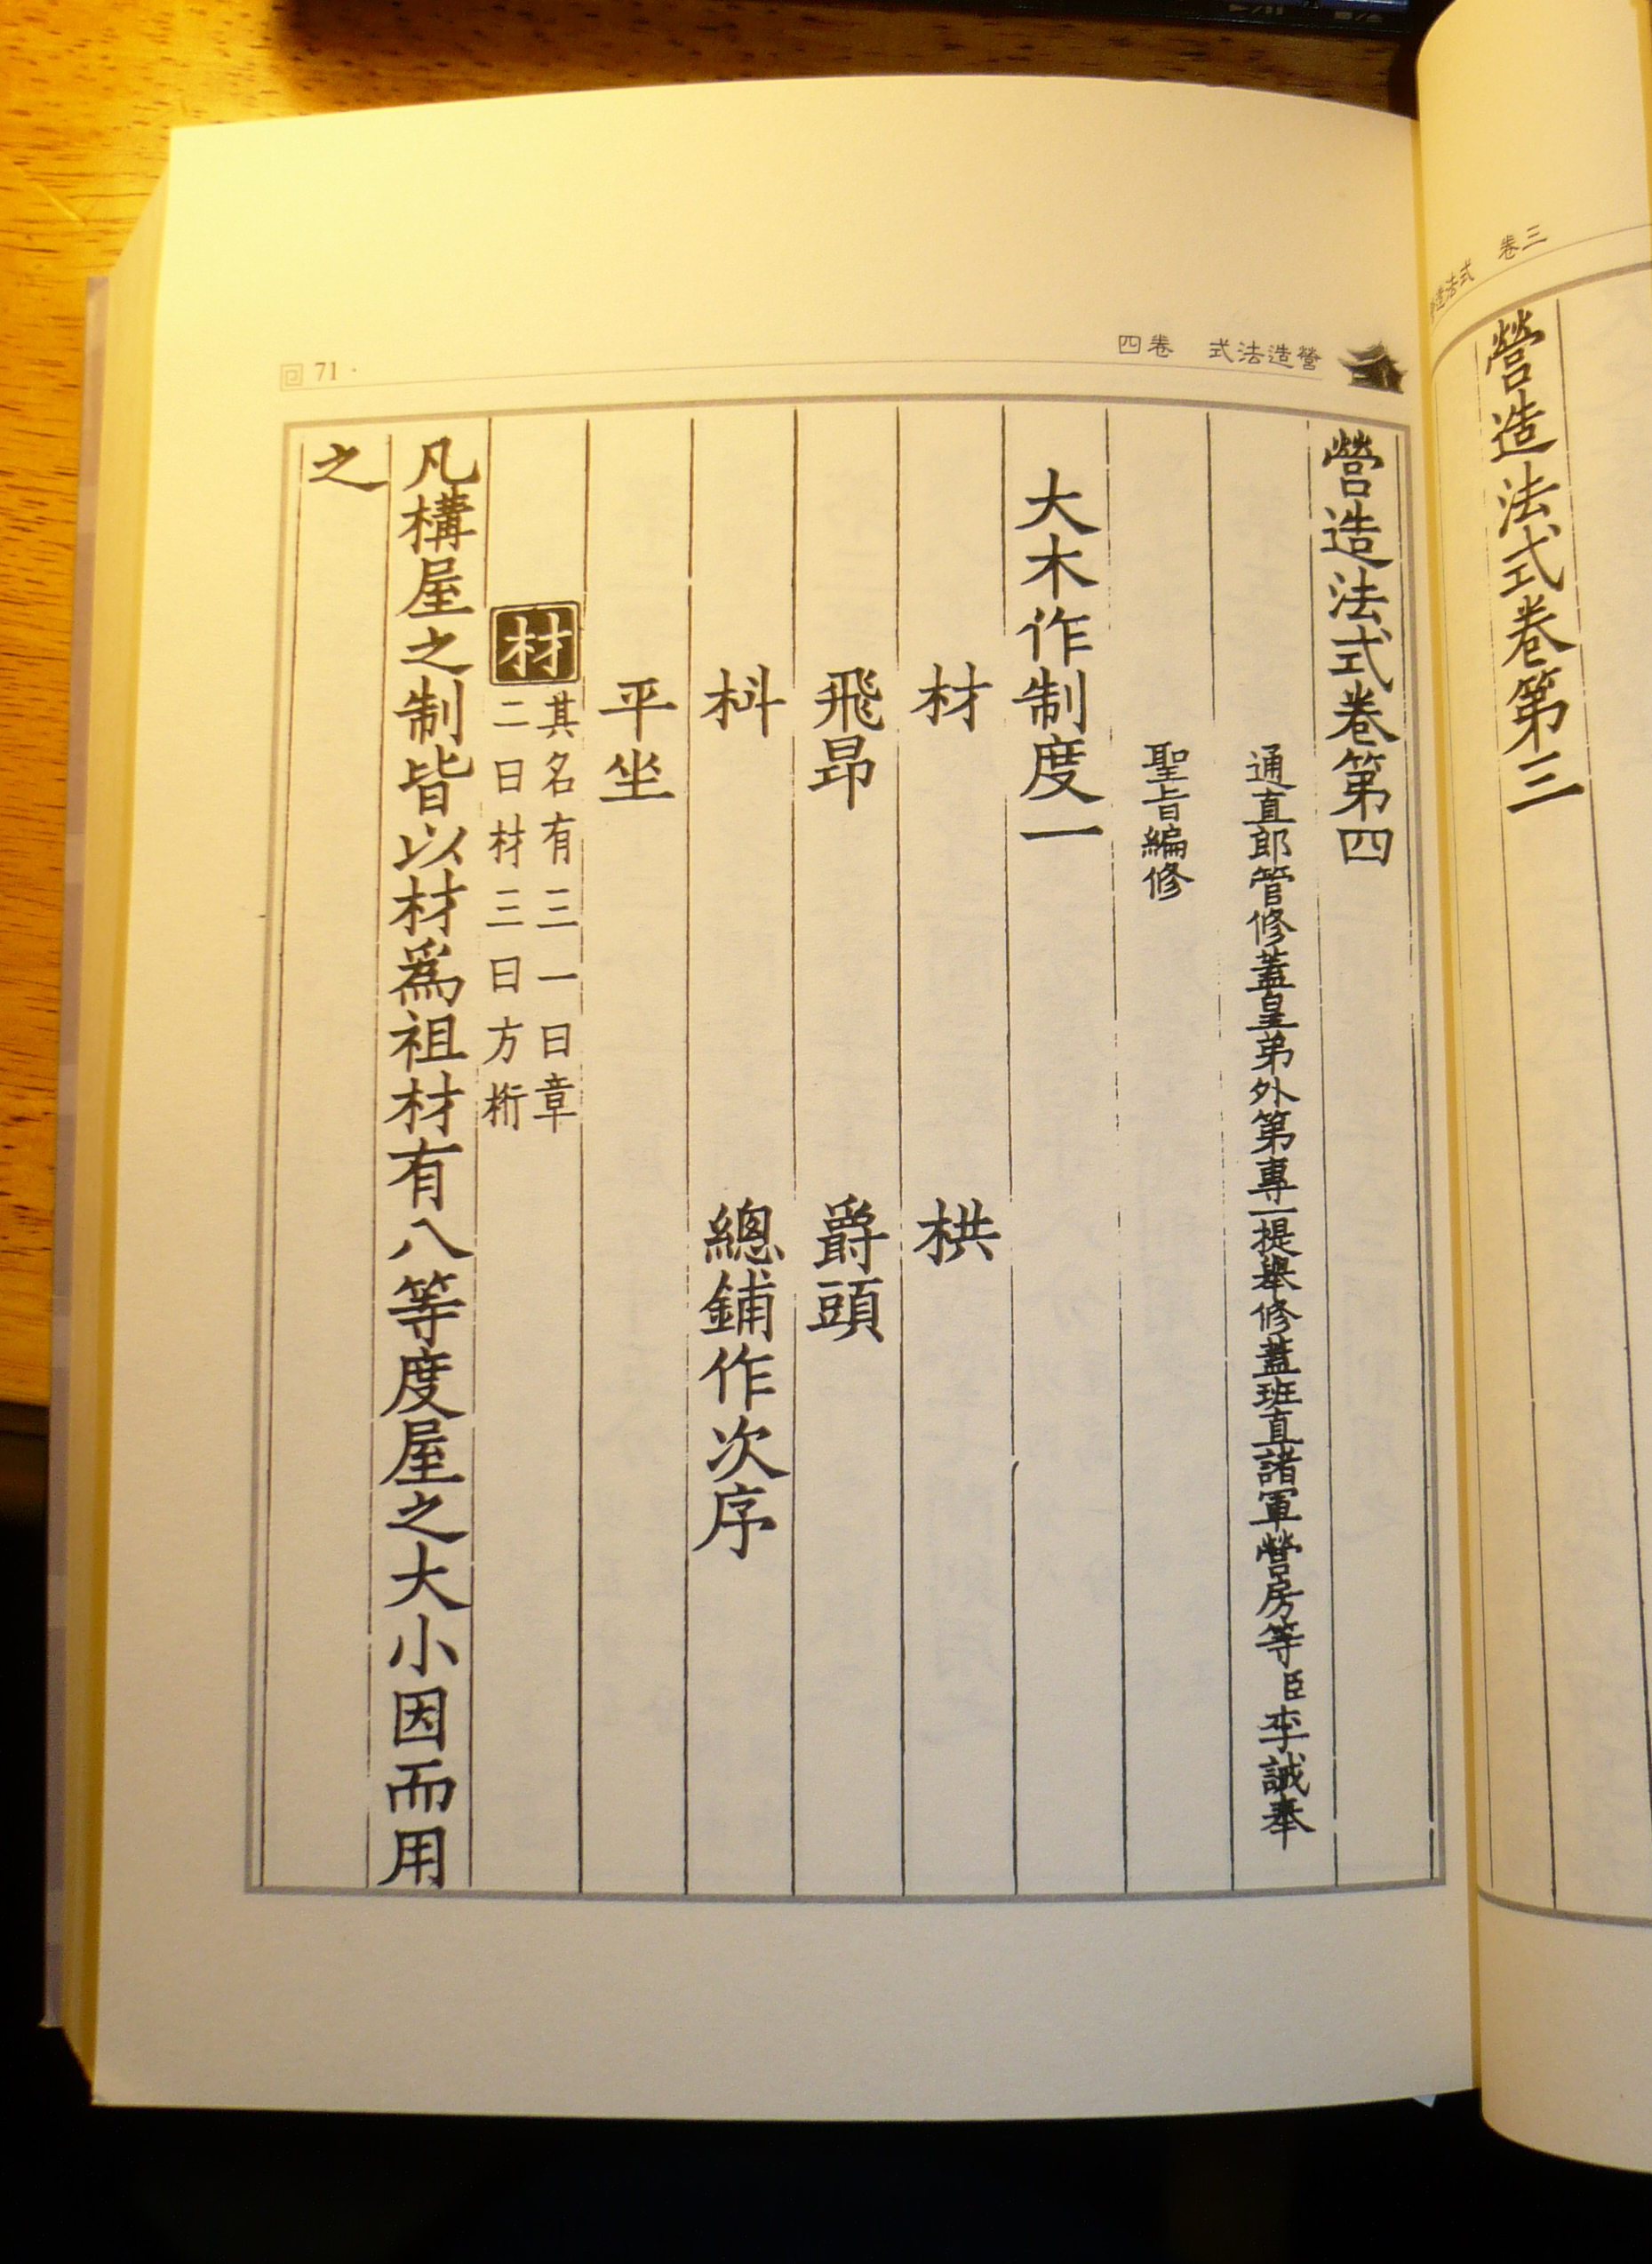 營造法式 卷三
營造法式卷第三
營造法式 卷四
71
營造法式卷第四
通直郎管修蓋皇弟外第專一提舉修蓋班直諸軍營房等臣李誡奉
聖旨編修
大木作制度一
材 栱
飛昂 爵頭
枓 總鋪作次序
平坐
材 其名有三一曰章
二曰材三曰方桁
凡構屋之制皆以材爲祖材有八等度屋之大小因而用
之